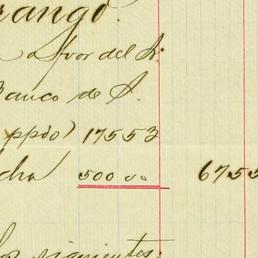 rango.
a favor del Sr.
Banco de S.
ppdo) 17553
cha 500 00 6755
los siguientes: